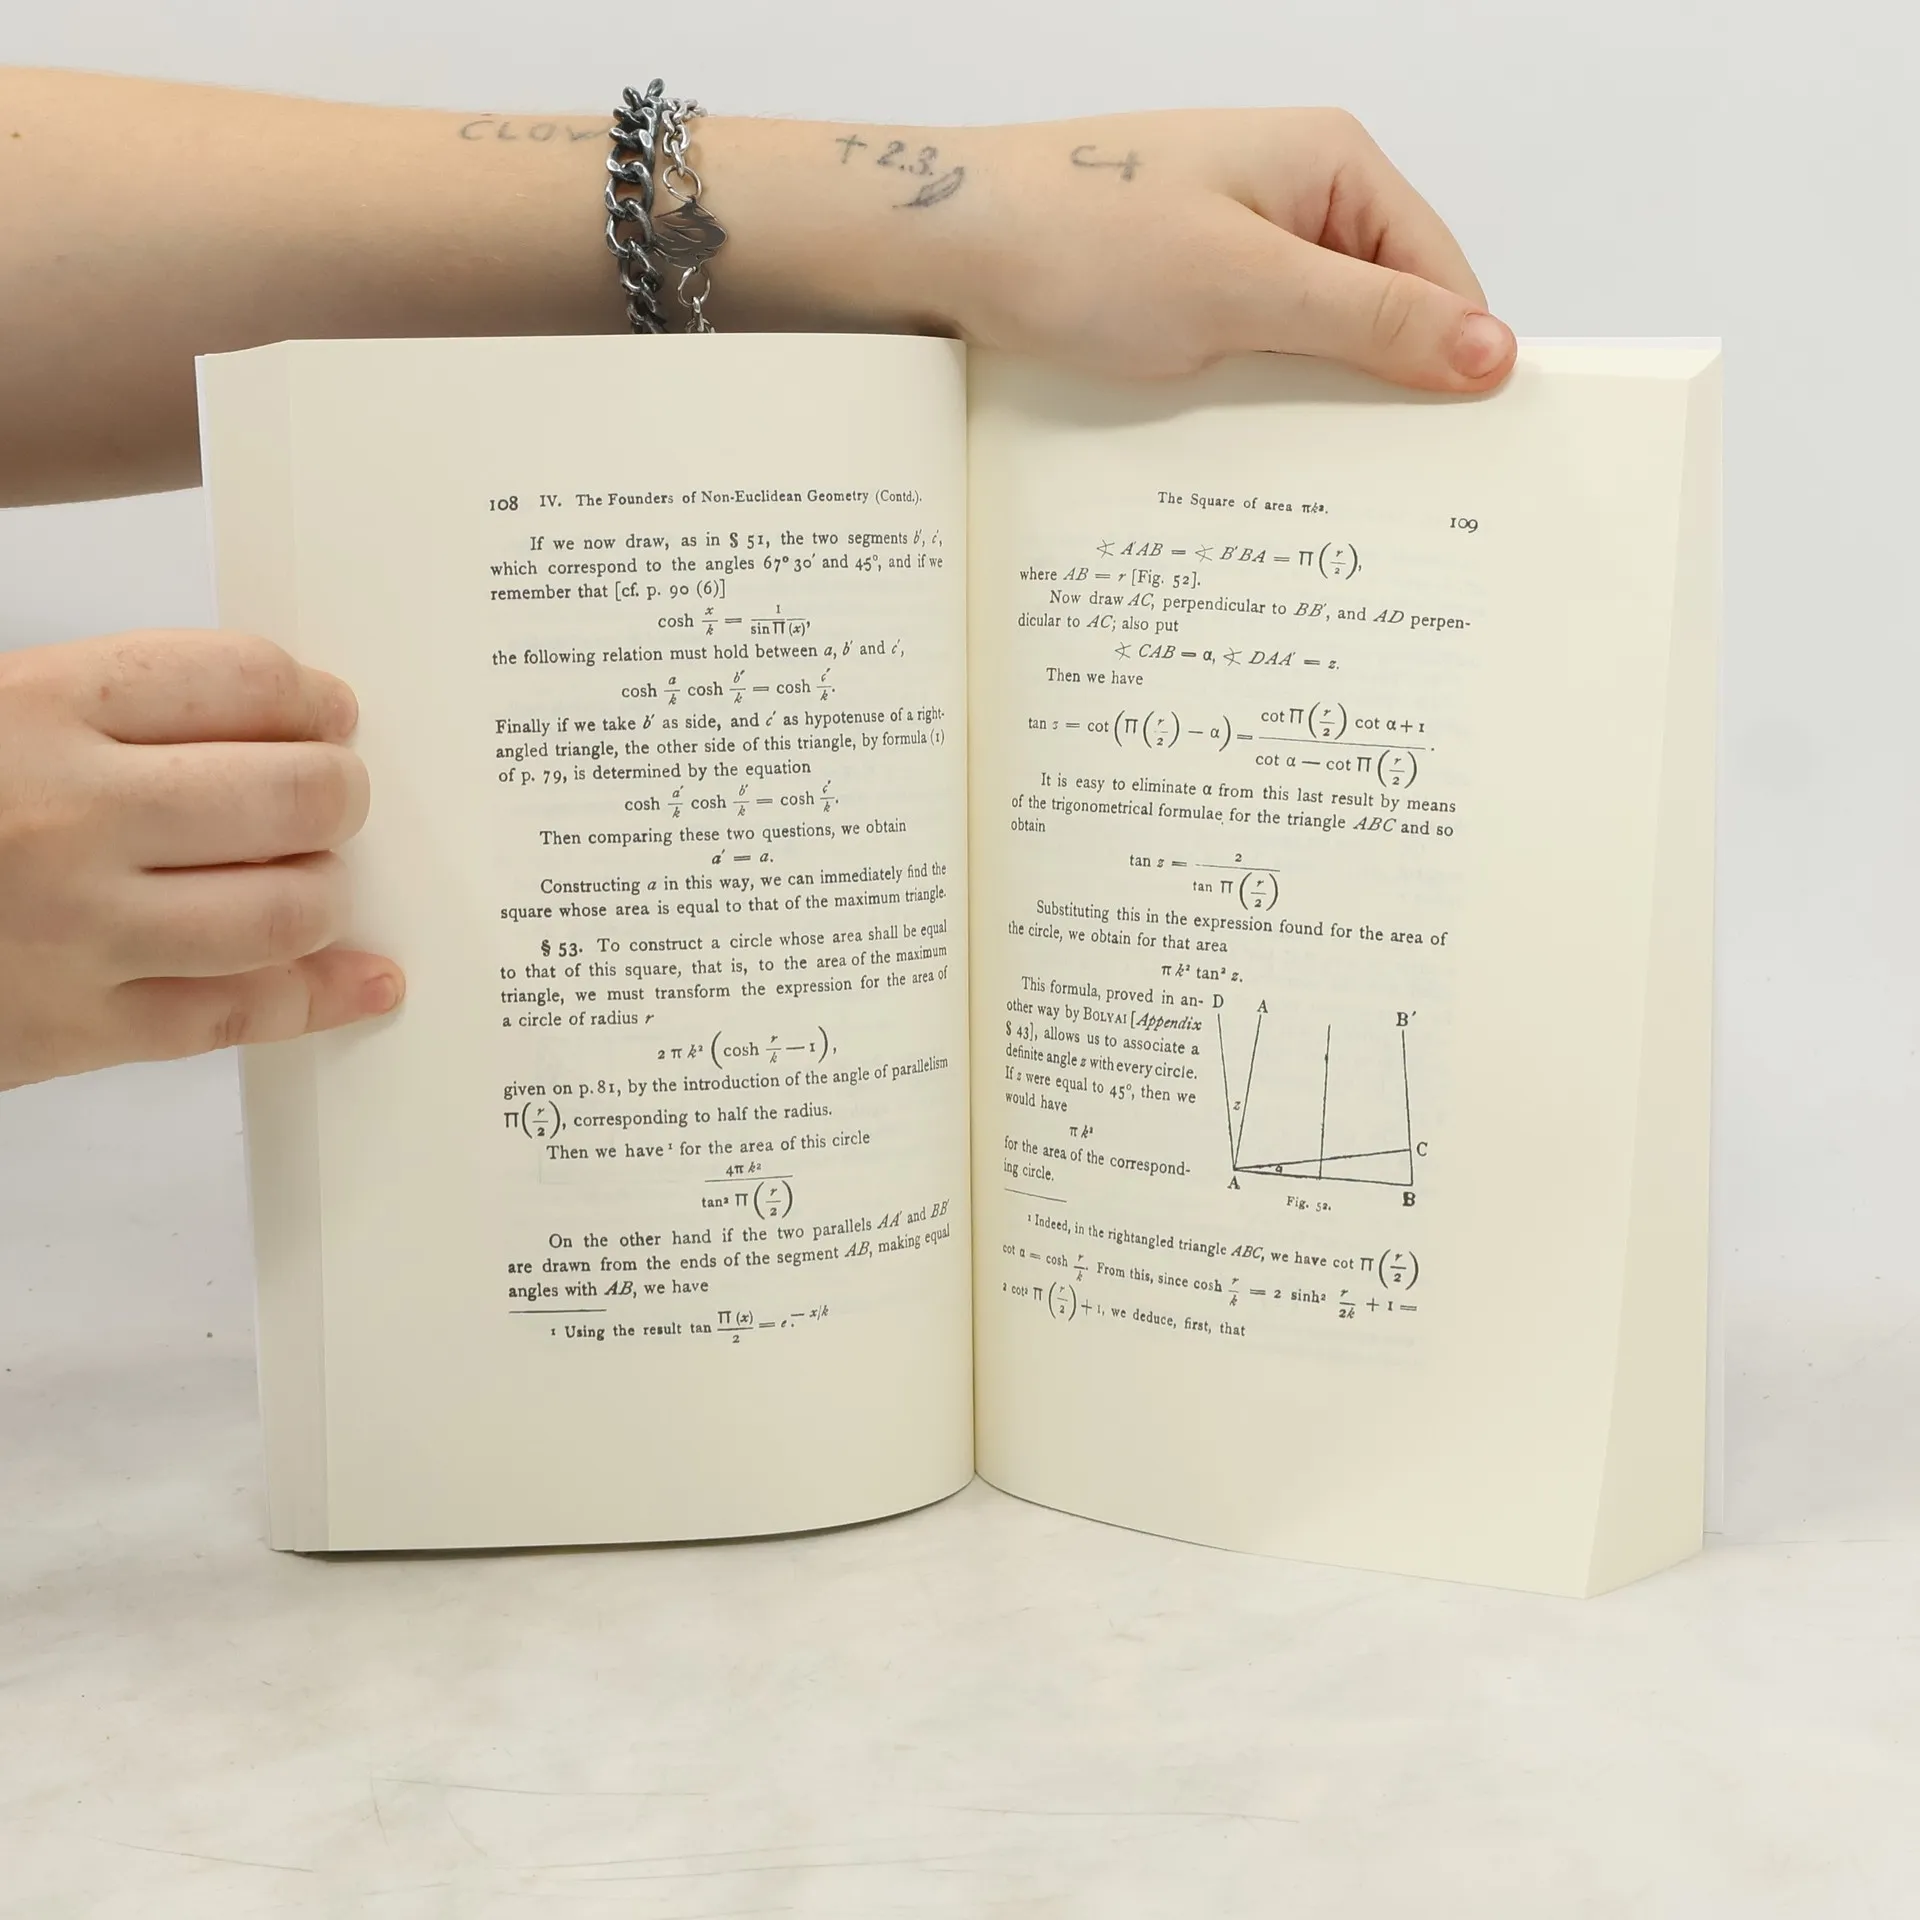 CLOW
+ 2.3.
108 IV. The Founders of Non-Euclidean Geometry (Contd.).
If we now draw, as in § 51, the two segments b′, c′,
which correspond to the angles 67° 30′ and 45°, and if we
remember that [cf. p. 90 (6)]
cosh x/k = 1/sin Π (x),
the following relation must hold between a, b′ and c′,
cosh a/k cosh b′/k = cosh c′/k.
Finally if we take b′ as side, and c′ as hypotenuse of a right-
angled triangle, the other side of this triangle, by formula (1)
of p. 79, is determined by the equation
cosh a′/k cosh b′/k = cosh c′/k.
Then comparing these two questions, we obtain
a′ = a.
Constructing a in this way, we can immediately find the
square whose area is equal to that of the maximum triangle.
§ 53. To construct a circle whose area shall be equal
to that of this square, that is, to the area of the maximum
triangle, we must transform the expression for the area of
a circle of radius r
2 π k² (cosh r/k — 1),
given on p. 81, by the introduction of the angle of parallelism
Π(r/2), corresponding to half the radius.
Then we have ¹ for the area of this circle
4π k²/tan² Π (r/2)
On the other hand if the two parallels AA′ and BB′
are drawn from the ends of the segment AB, making equal
angles with AB, we have
¹ Using the result tan Π (x)/2 = e.— x/k
The Square of area πk².
109
∢ A′AB = ∢ B′BA = Π (r/2),
where AB = r [Fig. 52].
Now draw AC, perpendicular to BB′, and AD perpen-
dicular to AC; also put
∢ CAB = α, ∢ DAA′ = z.
Then we have
tan z = cot (Π (r/2) — α) = cot Π (r/2) cot α + 1/cot α — cot Π (r/2).
It is easy to eliminate α from this last result by means
of the trigonometrical formulae for the triangle ABC and so
obtain
tan z = 2/tan Π (r/2)
Substituting this in the expression found for the area of
the circle, we obtain for that area
π k² tan² z.
This formula, proved in an-
other way by BOLYAI [Appendix
§ 43], allows us to associate a
definite angle z with every circle.
If z were equal to 45°, then we
would have
π k²
for the area of the correspond-
ing circle.
D A B′
z
C
α
A B
Fig. 52.
¹ Indeed, in the rightangled triangle ABC, we have cot Π (r/2)
cot α = cosh r/k. From this, since cosh r/k = 2 sinh² r/2k + 1 =
2 cot² Π (r/2) + 1, we deduce, first, that